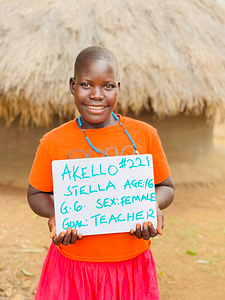 AKELLO #221
STELLA AGE/16
G.6. SEX:FEMALE
GOAL:TEACHER